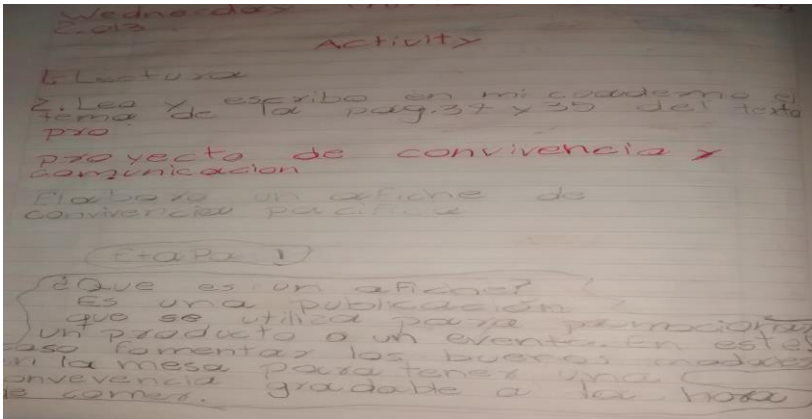 Wednesday
2.013
Activity
1. Lectura
2. Leo y escribo en mi cuaderno el
tema de la pag. 34 y 35 del texto
pro
proyecto de convivencia y
comunicacion
Elaboro un afiche de
convivencia pacifica
Etapa 1
¿Que es un afiche?
Es una publicación
que se utiliza para promocionar
un producto o un evento. En este
caso fomentar los buenos modales
en la mesa para tener una
convevencia gradable a la hora
de comer.